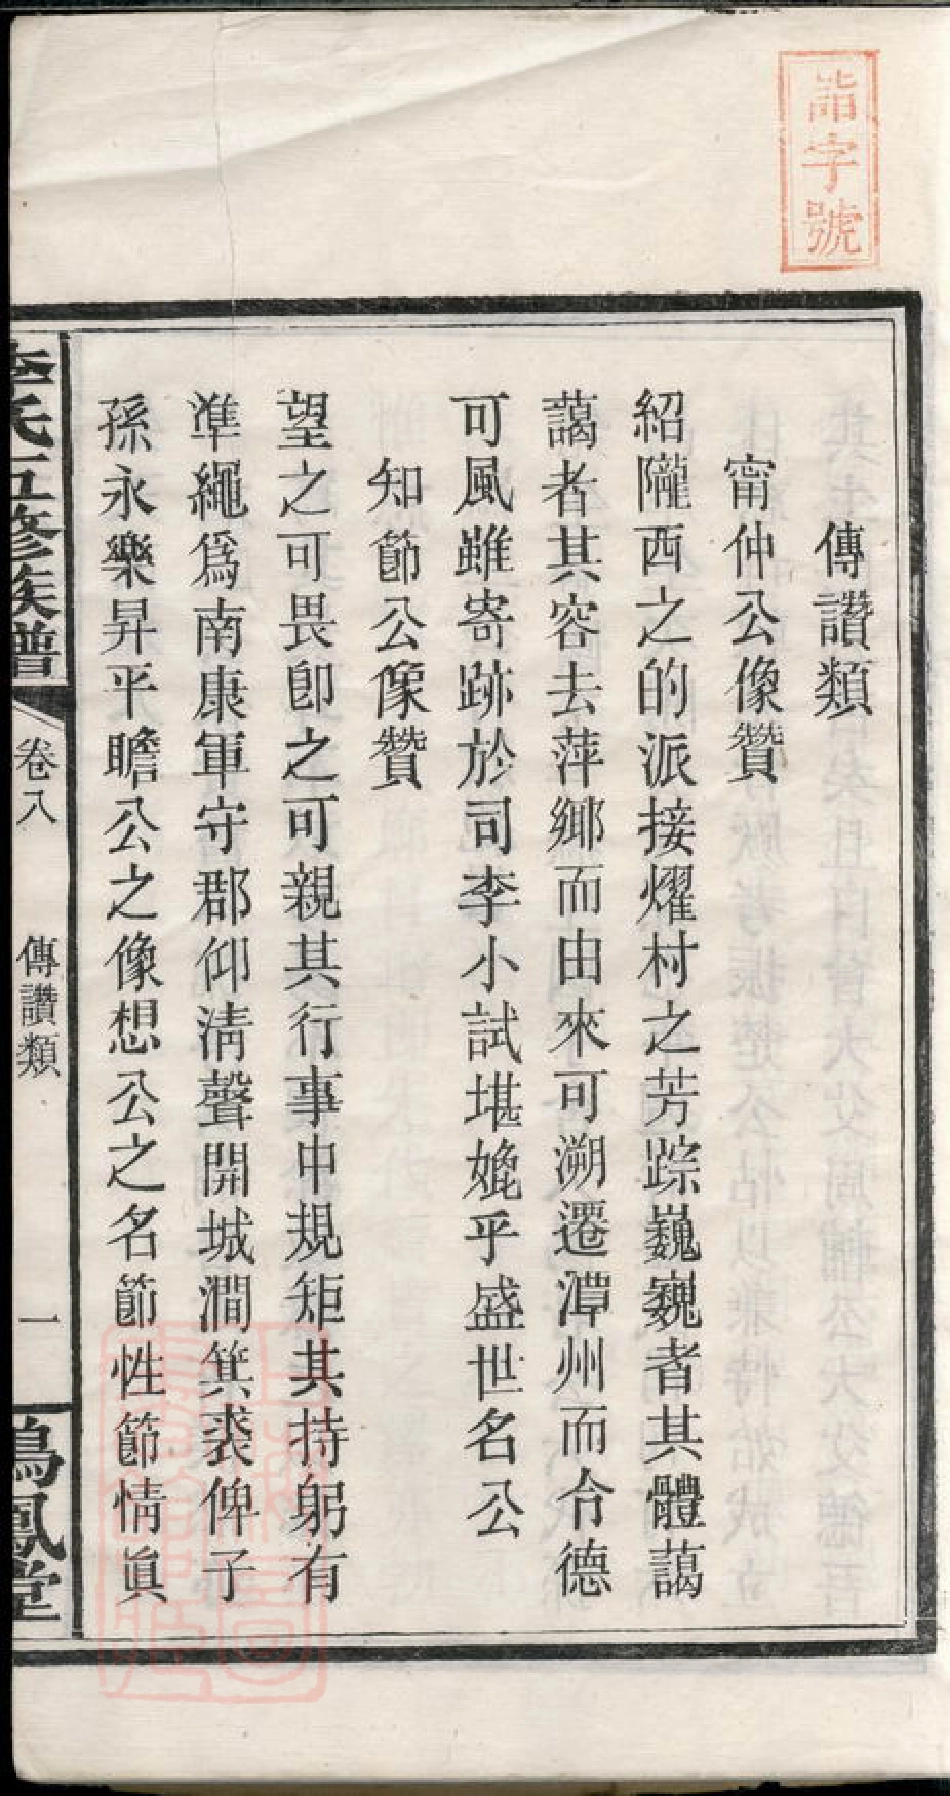 詣字號
傳讚類
甯仲公像贊
紹隴西之的派接燿村之芳踪巍巍者其體藹
藹者其容去萍鄉而由來可溯遷潭州而令德
可風雖寄跡於司李小試堪媲乎盛世名公
知節公像贊
望之可畏卽之可親其行事中規矩其持躬有
準繩爲南康軍守郡仰清聲開城澗箕裘俾子
孫永樂昇平瞻公之像想公之名節性節情眞
李氏五修族譜
卷八
傳讚類
一
鳴鳳堂